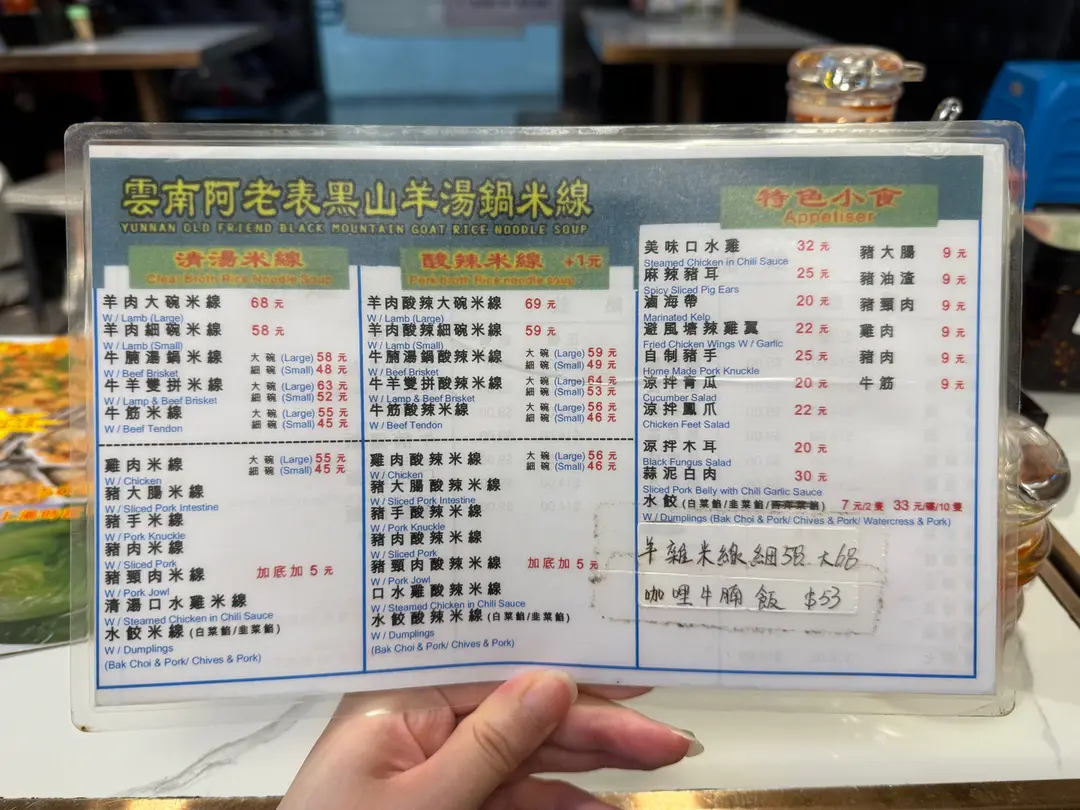 雲南阿老表黑山羊湯鍋米線
YUNNAN OLD FRIEND BLACK MOUNTAIN GOAT RICE NOODLE SOUP
清湯米線
Clear Broth Rice Noodle Soup
羊肉大碗米線 68元
W / Lamb (Large)
羊肉細碗米線 58元
W / Lamb (Small)
牛腩湯鍋米線 大碗 (Large) 58元
W / Beef Brisket 細碗 (Small) 48元
牛羊雙拼米線 大碗 (Large) 63元
W / Lamp & Beef Brisket 細碗 (Small) 52元
牛筋米線 大碗 (Large) 55元
W / Beef Tendon 細碗 (Small) 45元
雞肉米線 大碗 (Large) 55元
W / Chicken 細碗 (Small) 45元
豬大腸米線
W / Sliced Pork Intestine
豬手米線
W / Pork Knuckle
豬肉米線
W / Sliced Pork
豬頸肉米線 加底加5元
W / Pork Jowl
清湯口水雞米線
W / Steamed Chicken in Chili Sauce
水餃米線 (白菜餡/韭菜餡)
W / Dumplings
(Bak Choi & Pork/ Chives & Pork)
酸辣米線 +1元
Rice noodle soup
羊肉酸辣大碗米線 69元
W / Lamb (Large)
羊肉酸辣細碗米線 59元
W / Lamb (Small)
牛腩湯鍋酸辣米線 大碗 (Large) 59元
W / Beef Brisket 細碗 (Small) 49元
牛羊雙拼酸辣米線 大碗 (Large) 64元
W / Lamp & Beef Brisket 細碗 (Small) 53元
牛筋酸辣米線 大碗 (Large) 56元
W / Beef Tendon 細碗 (Small) 46元
雞肉酸辣米線 大碗 (Large) 56元
W / Chicken 細碗 (Small) 46元
豬大腸酸辣米線
W / Sliced Pork Intestine
豬手酸辣米線
W / Pork Knuckle
豬肉酸辣米線
W / Sliced Pork
豬頸肉酸辣米線 加底加5元
W / Pork Jowl
口水雞酸辣米線
W / Steamed Chicken in Chili Sauce
水餃酸辣米線 (白菜餡/韭菜餡)
W / Dumplings
(Bak Choi & Pork/ Chives & Pork)
特色小食
Appetiser
美味口水雞 32元
Steamed Chicken in Chili Sauce
麻辣豬耳 25元
Spicy Sliced Pig Ears
滷海帶 20元
Marinated Kelp
避風塘辣雞翼 22元
Fried Chicken Wings W / Garlic
自制豬手 25元
Home Made Pork Knuckle
涼拌青瓜 20元
Cucumber Salad
涼拌鳳爪 22元
Chicken Feet Salad
涼拌木耳 20元
Black Fungus Salad
蒜泥白肉 30元
Sliced Pork Belly with Chili Garlic Sauce
水餃 (白菜餡/韭菜餡/西洋菜餡) 7元/2隻 33元/碟/10隻
W / Dumplings (Bak Choi & Pork/ Chives & Pork/ Watercress & Pork)
豬大腸 9元
豬油渣 9元
豬頸肉 9元
雞肉 9元
豬肉 9元
牛筋 9元
羊雜米線細58 大68
咖哩牛腩飯 $53